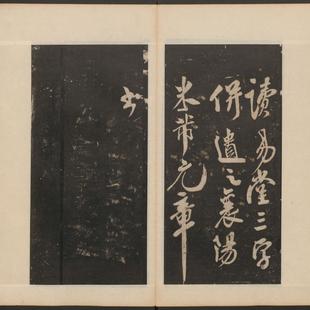 讀易堂三字
併遺之襄陽
米芾元章
書